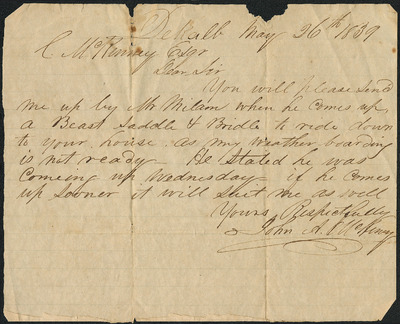 DeKalb May 26th 1837
C. McKinney Esqr
Dear Sir
You will please send
me up by Mr Milam when he comes up,
a Beast Saddle & Bridle to ride down
to your house as my weather boarding
is not ready- He stated he was
comeing up Wednesday if he comes
up sooner it will suit me as well
Yours Respectfully
John A.